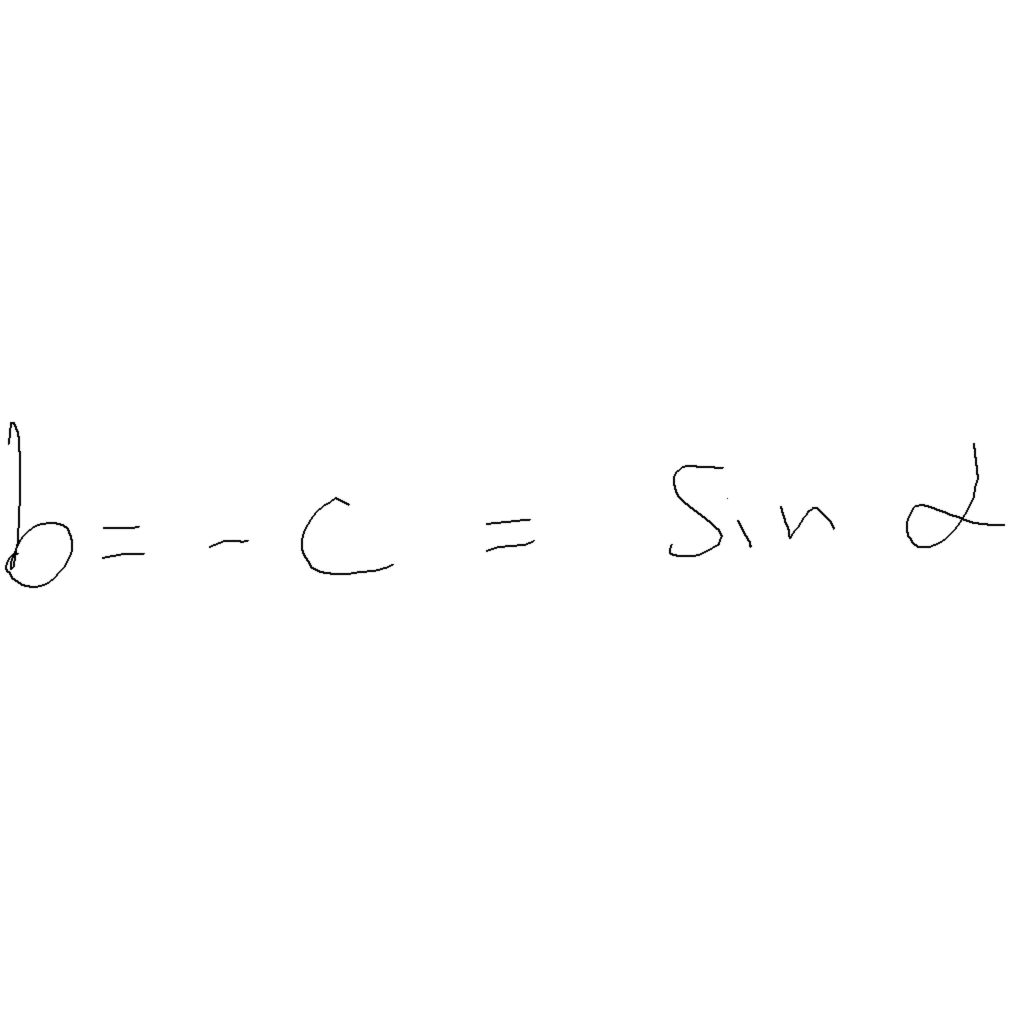 b = - c = sin α